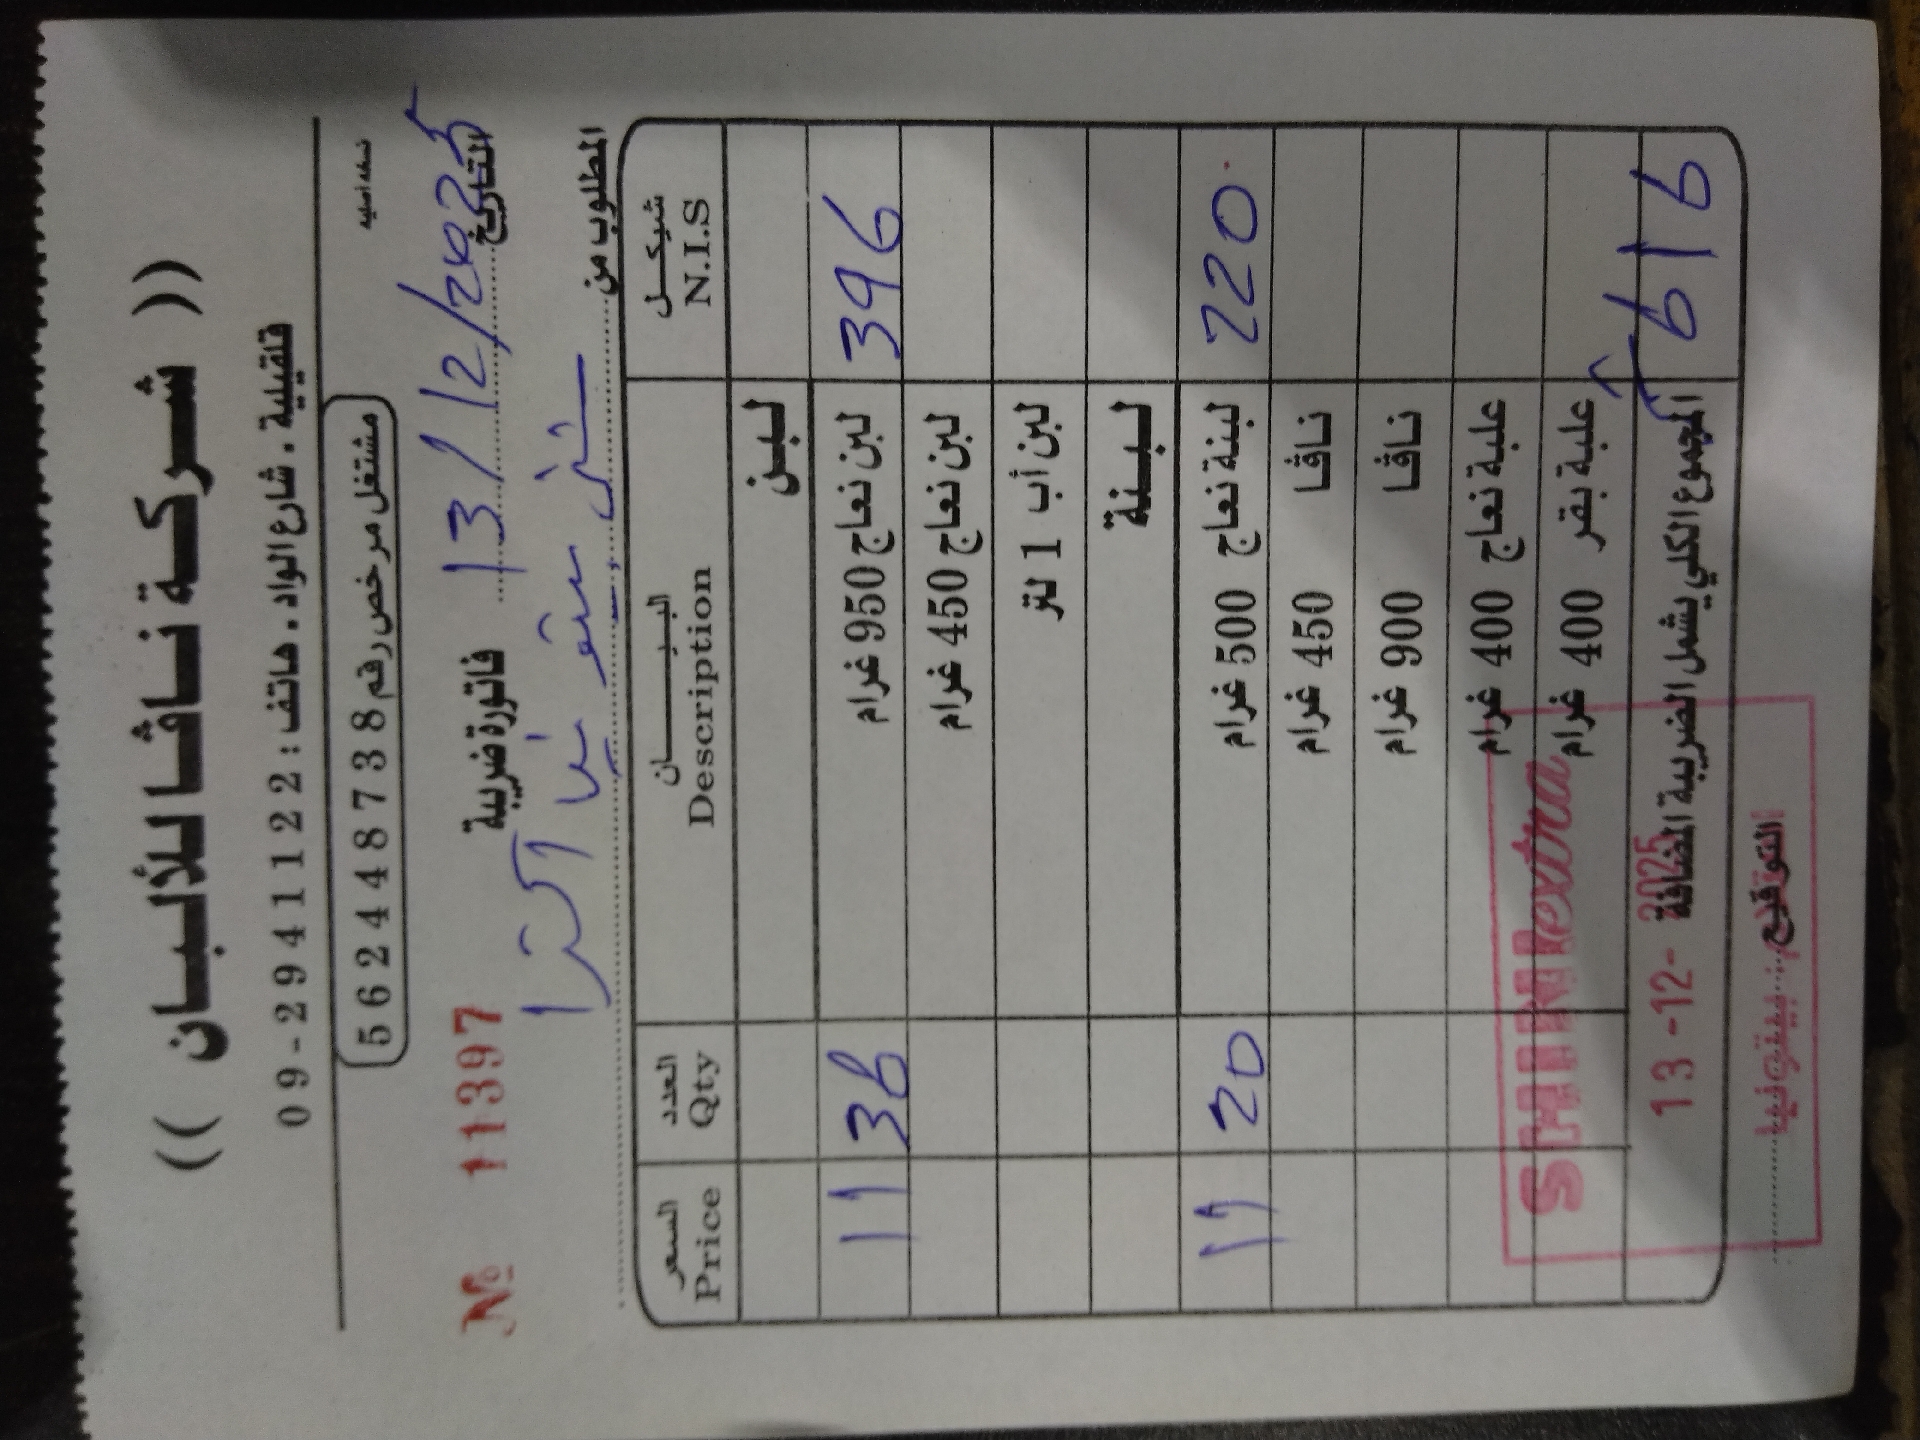 (( شركة ناڤا للألبان ))
قلقيلية . شارع الواد . هاتف : 2941122-09
مشتغل مرخص رقم 562448738
نسخة أصلية
التاريخ 13/12/2025
فاتورة ضريبية
№ 11397
المطلوب من شني بيتونيا اكسترا
شيكل البيـــــان العدد السعر
N.I.S Description Qty Price
لبن
396 لبن نعاج 950 غرام 36 11
لبن نعاج 450 غرام
لبن أب 1 لتر
لبنة
220 لبنة نعاج 500 غرام 20 11
ناڤا 450 غرام
ناڤا 900 غرام
علبة نعاج 400 غرام
علبة بقر 400 غرام
616 المجموع الكلي يشمل الضريبة المضافة
SHINI extra
13 -12- 2025
التوقيع
بيتونيا